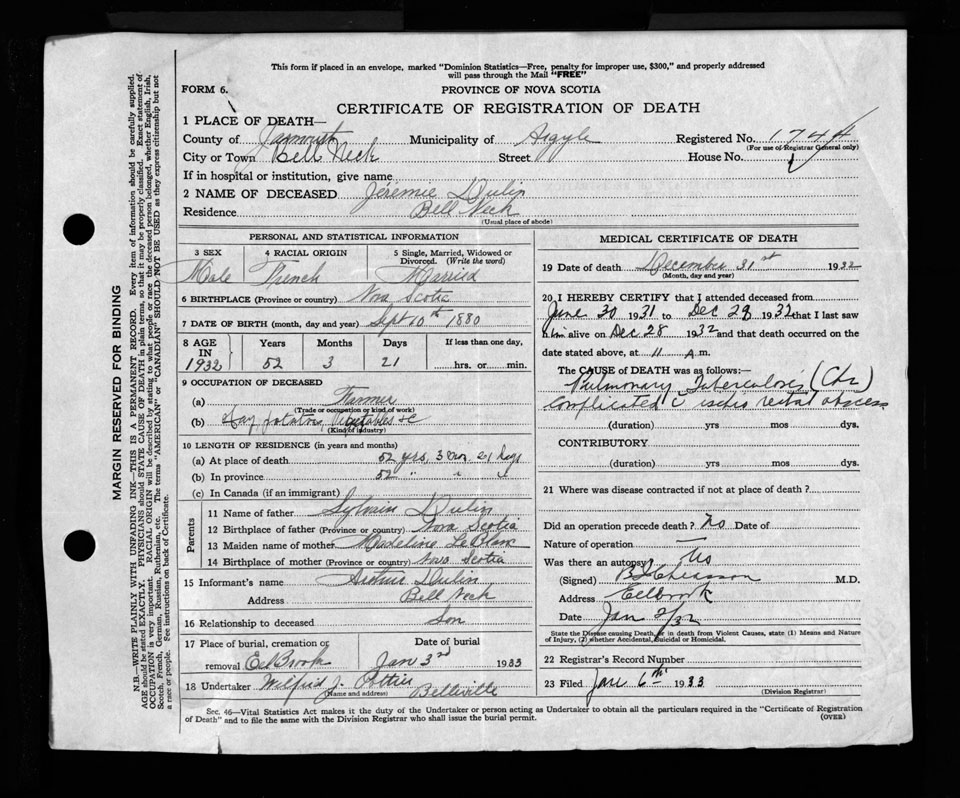 This form if placed in an envelope, marked "Dominion Statistics—Free, penalty for improper use, $300," and properly addressed
will pass through the Mail "FREE"
FORM 6.
PROVINCE OF NOVA SCOTIA
CERTIFICATE OF REGISTRATION OF DEATH
1 PLACE OF DEATH—
County of Yarmouth Municipality of Argyle Registered No. 1744
(For use of Registrar General only)
City or Town Bell Neck Street House No.
If in hospital or institution, give name
2 NAME OF DECEASED Jéremie Dulin
Residence Bell Neck
(Usual place of abode)
PERSONAL AND STATISTICAL INFORMATION
3 SEX 4 RACIAL ORIGIN 5 Single, Married, Widowed or
Divorced. (Write the word)
Male French Married
6 BIRTHPLACE (Province or country) Nova Scotia
7 DATE OF BIRTH (month, day and year) Sept 10th 1880
8 AGE Years Months Days If less than one day,
IN
1932 52 3 21 hrs. or min.
9 OCCUPATION OF DECEASED
(a) Farmer
(Trade or occupation or kind of work)
(b) Hay potatoes, Vegetables &c
(Kind of industry)
10 LENGTH OF RESIDENCE (in years and months)
(a) At place of death 52 yrs, 3 mo, 21 days
(b) In province 52 " " "
(c) In Canada (if an immigrant)
Parents
11 Name of father Sylvain Dulin
12 Birthplace of father (Province or country) Nova Scotia
13 Maiden name of mother Madeline LeBlanc
14 Birthplace of mother (Province or country) Nova Scotia
15 Informant's name Arthur Dulin
Address Bell Neck
16 Relationship to deceased Son
17 Place of burial, cremation or Date of burial
removal Eel Brook Jan 3rd 1933
18 Undertaker Wilfrid J. Pottier Belleville
(Name and address)
MEDICAL CERTIFICATE OF DEATH
19 Date of death December 31st 1932
(Month, day and year)
20 I HEREBY CERTIFY that I attended deceased from
June 30 1931 to Dec 29 1932 that I last saw
him alive on Dec 28 1932 and that death occurred on the
date stated above, at 11 A.m.
The CAUSE OF DEATH was as follows:—
Pulmonary Tuberculosis (Chr)
Complicated c ischio rectal abscess
(duration) yrs mos dys.
CONTRIBUTORY
(duration) yrs mos dys.
21 Where was disease contracted if not at place of death?
Did an operation precede death? No Date of
Nature of operation —
Was there an autopsy? No
(Signed) M.D.
Address Eelbrook
Date Jan 2/32
State the Disease causing Death, or in death from Violent Causes, state (1) Means and Nature
of Injury, (2) whether Accidental, Suicidal or Homicidal.
22 Registrar's Record Number
23 Filed Jan 6th 1933
(Division Registrar)
Sec. 46—Vital Statistics Act makes it the duty of the Undertaker or person acting as Undertaker to obtain all the particulars required in the "Certificate of Registration
of Death" and to file the same with the Division Registrar who shall issue the burial permit.
(OVER)
MARGIN RESERVED FOR BINDING
N.B.—WRITE PLAINLY WITH UNFADING INK—THIS IS A PERMANENT RECORD. Every item of information should be carefully supplied.
AGE should be stated EXACTLY. PHYSICIANS should STATE CAUSE OF DEATH in plain terms, so that it may be properly classified. Exact statement of
OCCUPATION is very important. RACIAL ORIGIN will be described by stating to what people or race the deceased person belonged, whether English, Irish,
Scotch, French, German, Russian, Ruthenian, etc. The terms "AMERICAN" or "CANADIAN" SHOULD NOT BE USED as they express citizenship but not
a race or people. See instructions on back of Certificate.